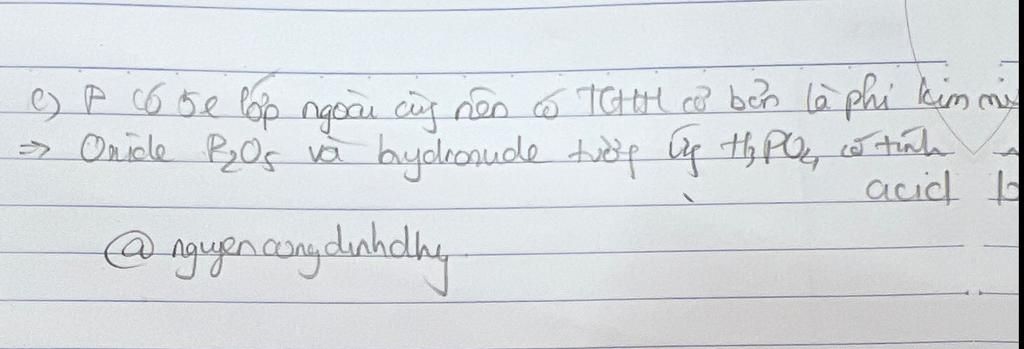 e) P có 5e lớp ngoài cùg nên có TCHH cơ bản là phi kim
=> Oxide P₂O₅ và hydroxide tươg ứg H₃PO₄ có tính
acid
@nguyencongdinhdhy